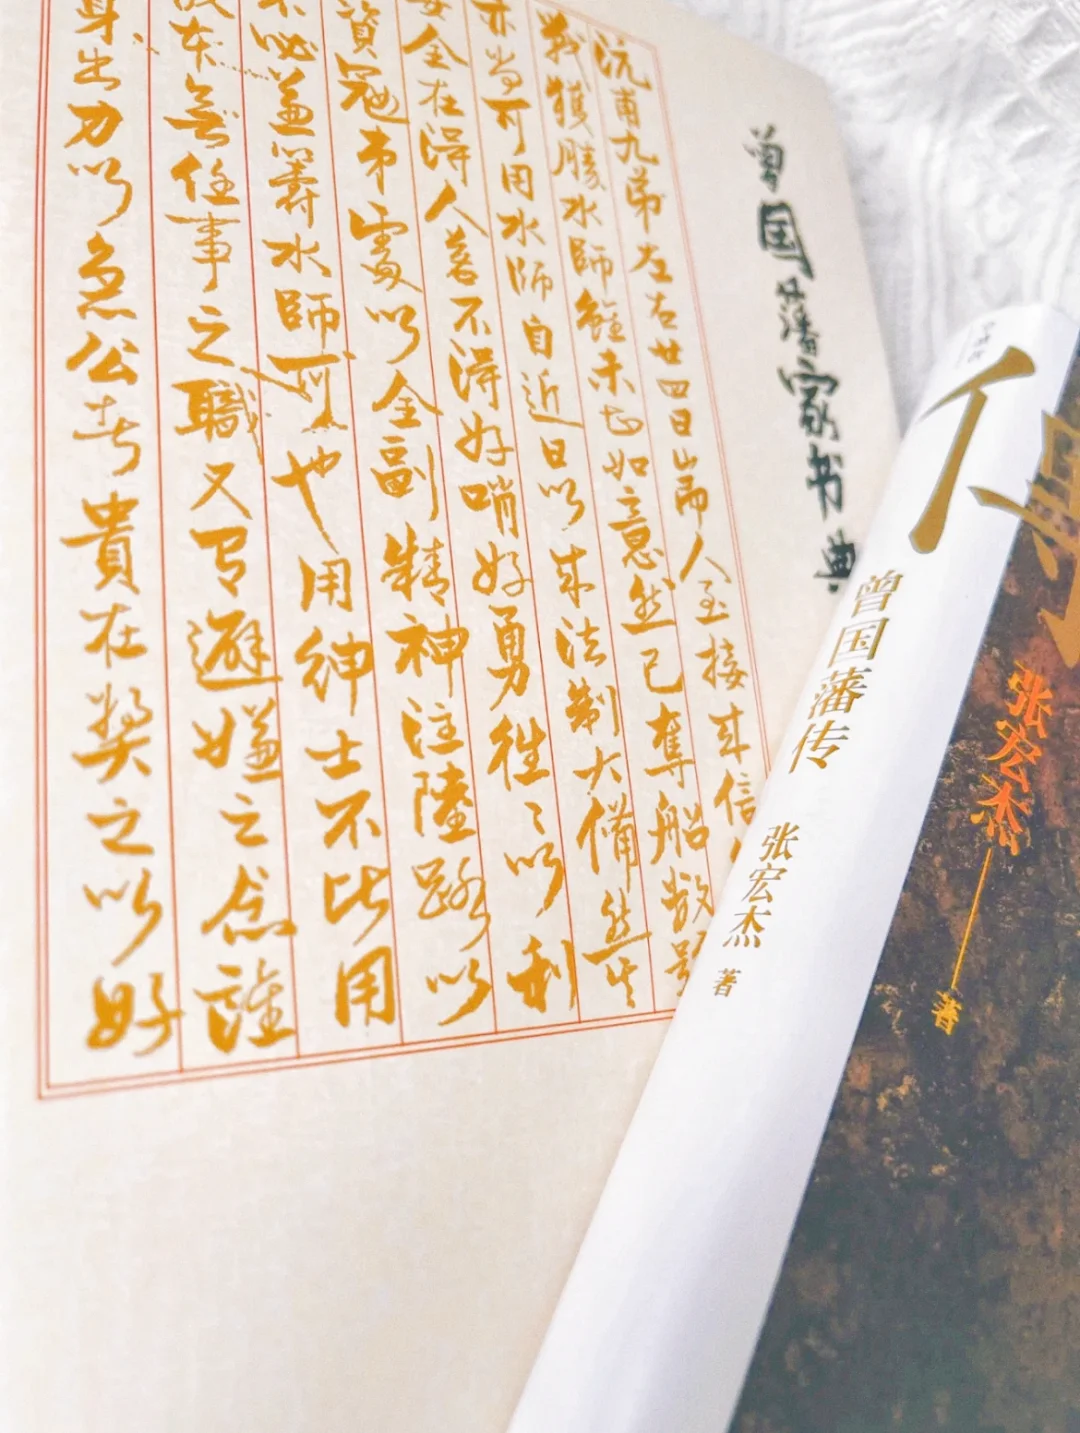 曾国藩家书典
沅甫九弟左右廿四日耑人至接来信
我獲勝水師雖未如意然已奪船數號
亦尚可用水師自近日以来法制大備然其
全在得人若不得好哨好勇往〻以利
資寇弟處以全副精神注陸路以
不必兼籌水師可也用紳士不比用
本無任事之職又有避嫌之念誰
身出力以急公者貴在獎之以好
曾国藩传
张宏杰 著
张宏杰——著